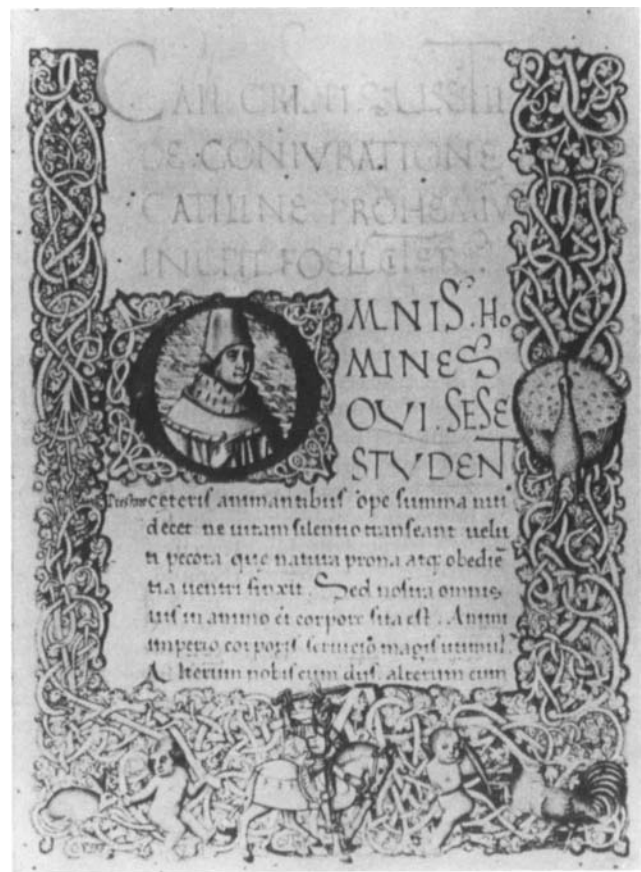 DE CONIVRATIONE
CATILINE PROHEMIV
INCIPIT FOELICITER
OMNIS. Ho
MINES
QVI. SESE
STVDENT
ceteris animantibus ope summa niti
decet ne uitam silentio transeant uelu
ti pecora que natura prona atq; obediē
tia uentri finxit. Sed nostra omnis
uis in animo et corpore sita est. Animi
imperio corporis seruicio magis utimur
Alterum nobis cum diis alterum cum